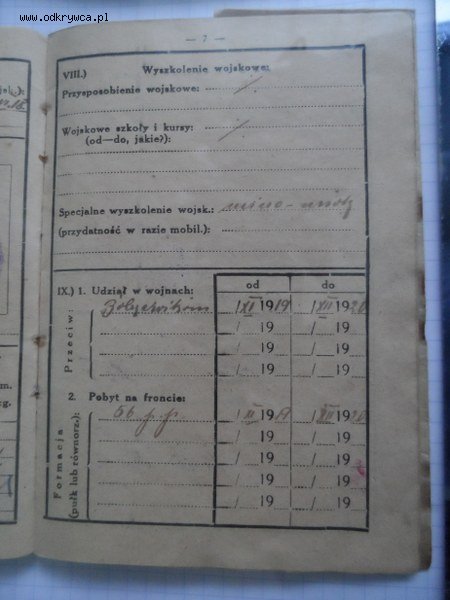 www.odkrywca.pl
— 7 —
VIII.) Wyszkolenie wojskowe:
Przysposobienie wojskowe: /
Wojskowe szkoły i kursy: /
(od—do, jakie?):
Specjalne wyszkolenie wojsk.: mino-
(przydatność w razie mobil.):
od do
IX.) 1. Udział w wojnach:
Przeciw: Bolszewikom / XI 1919 / XII 1920
/ 19 / 19
/ 19 / 19
/ 19 / 19
2. Pobyt na froncie:
Formacja
(pułk lub równorz.):
66 p.p. / XI 1919 / XII 1920
/ 19 / 19
/ 19 / 19
/ 19 / 19
/ 19 / 19